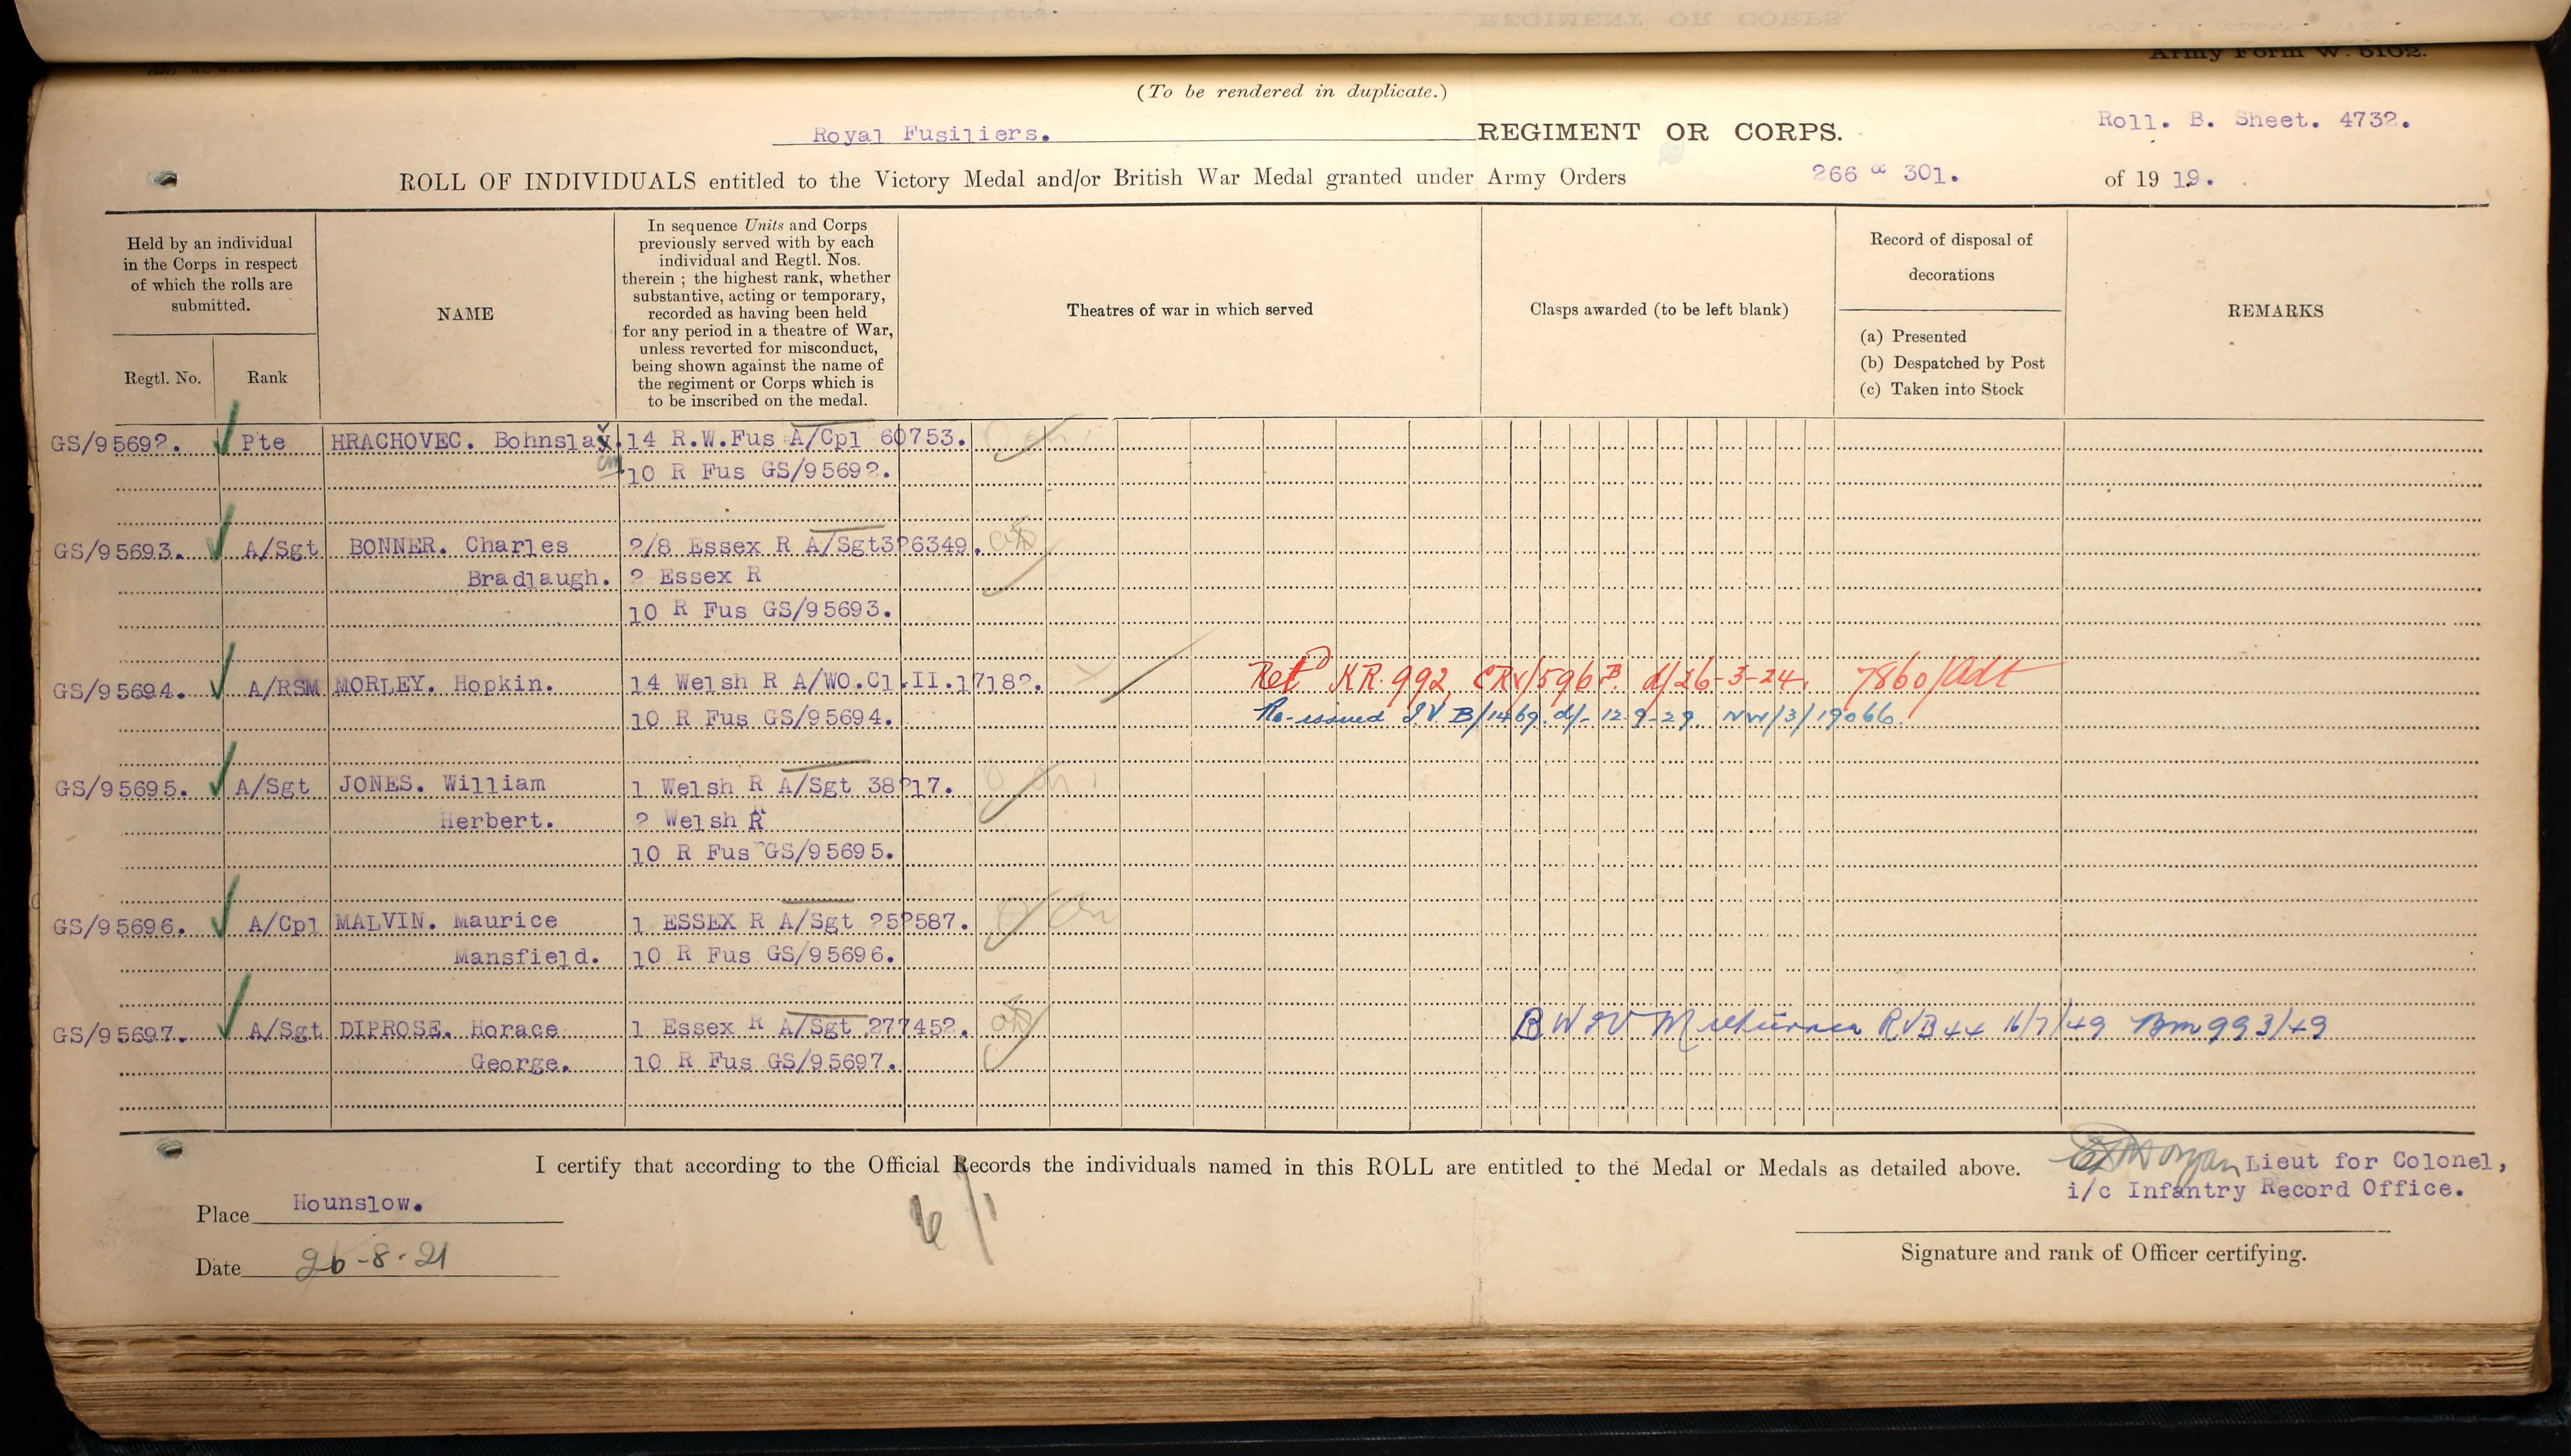 Army Form W. 5102.
(To be rendered in duplicate.)
Royal Fusiliers. REGIMENT OR CORPS. Roll. B. Sheet. 4732.
ROLL OF INDIVIDUALS entitled to the Victory Medal and/or British War Medal granted under Army Orders 266 & 301. of 19 19.
Held by an individual
in the Corps in respect
of which the rolls are
submitted.
Regtl. No. Rank
NAME
In sequence Units and Corps
previously served with by each
individual and Regtl. Nos.
therein ; the highest rank, whether
substantive, acting or temporary,
recorded as having been held
for any period in a theatre of War,
unless reverted for misconduct,
being shown against the name of
the regiment or Corps which is
to be inscribed on the medal.
Theatres of war in which served
Clasps awarded (to be left blank)
Record of disposal of
decorations
(a) Presented
(b) Despatched by Post
(c) Taken into Stock
REMARKS
GS/95692. Pte HRACHOVEC. Bohnslav. 14 R.W.Fus A/Cpl 60753.
10 R Fus GS/95692.
GS/95693. A/Sgt BONNER. Charles 2/8 Essex R A/Sgt 326349.
Bradlaugh. 2 Essex R
10 R Fus GS/95693.
GS/95694. A/RSM MORLEY. Hopkin. 14 Welsh R A/WO.Cl.II.17182. Retd KR. 992, CRV/596B. d/26-3-24. 7860/Adt
10 R Fus GS/95694. Re-issued I.V B/1469. d/- 12-9-29. NW/3/19066.
GS/95695. A/Sgt JONES. William 1 Welsh R A/Sgt 38217.
Herbert. 2 Welsh R
10 R Fus GS/95695.
GS/95696. A/Cpl MALVIN. Maurice 1 ESSEX R A/Sgt 252587.
Mansfield. 10 R Fus GS/95696.
GS/95697. A/Sgt DIPROSE. Horace 1 Essex R A/Sgt 277452. BW & V M RVB44 16/7/49 Bm993/49
George. 10 R Fus GS/95697.
I certify that according to the Official Records the individuals named in this ROLL are entitled to the Medal or Medals as detailed above.
Morgan Lieut for Colonel,
i/c Infantry Record Office.
Place Hounslow.
Date 26-8-21
Signature and rank of Officer certifying.